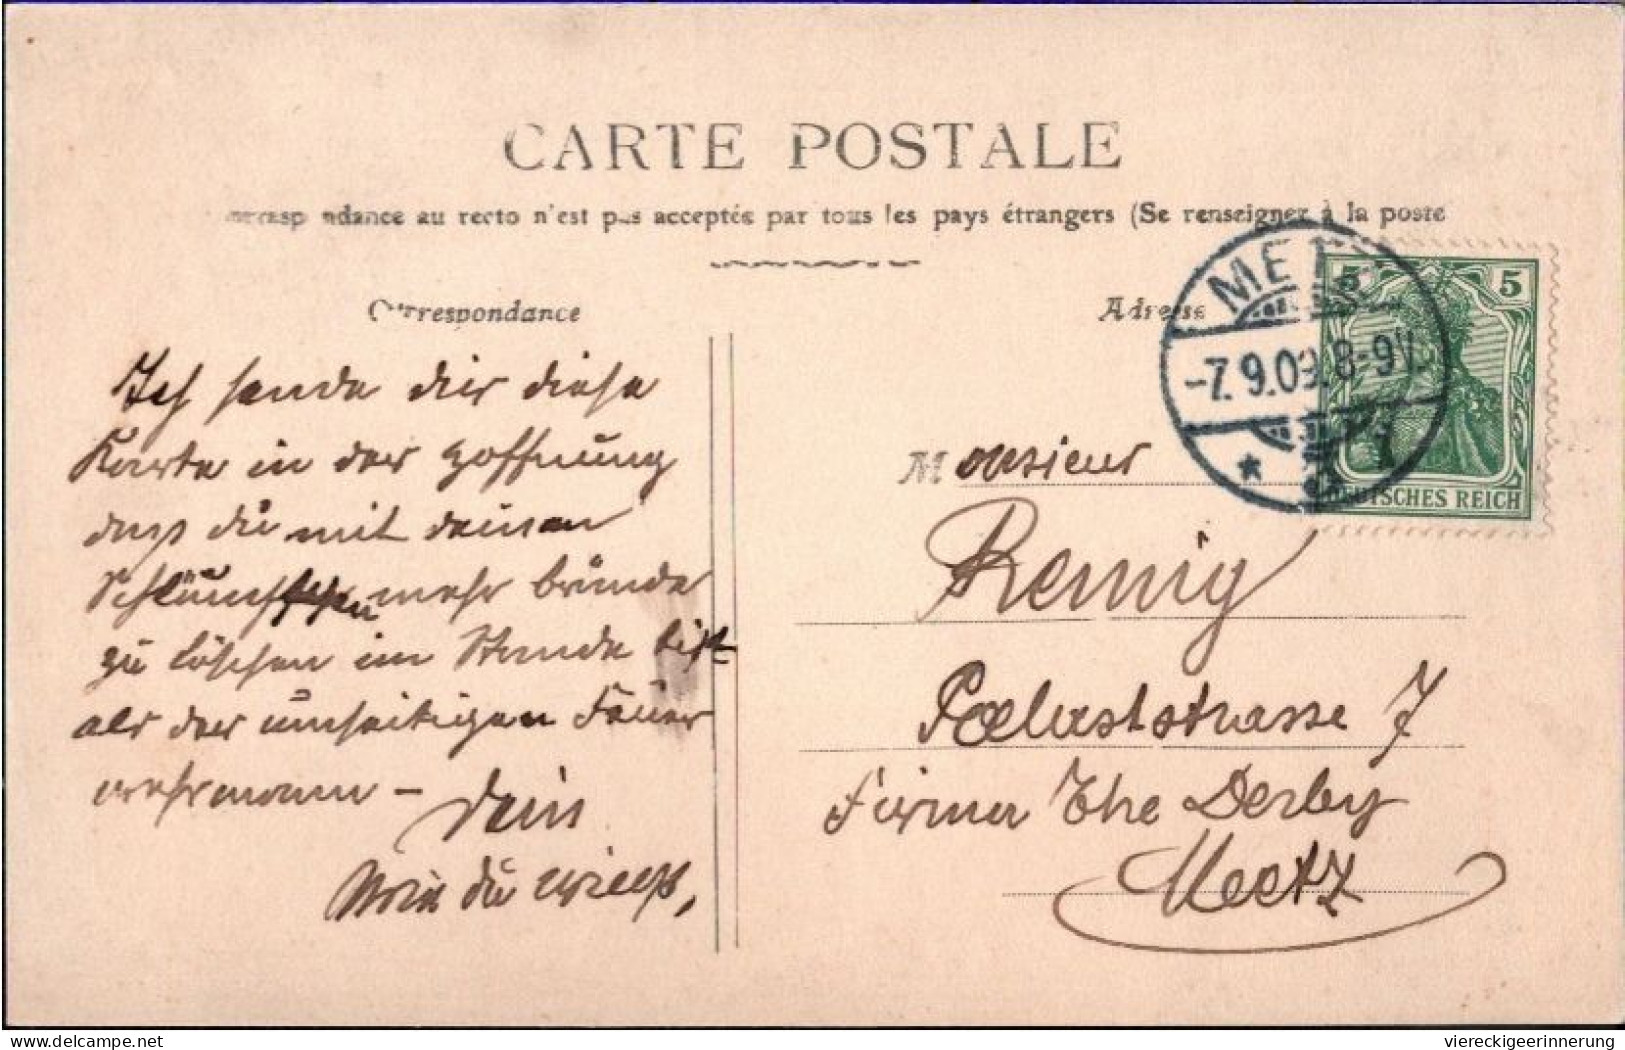 CARTE POSTALE
respondance au recto n'est pas acceptée par tous les pays étrangers (Se renseigner à la poste
Correspondance
Adresse
MET
-7.9.09.8-9V.
5 5
DEUTSCHES REICH
Ich sende dir diese
Karte in der Hoffnung
dass du mit deinen
mehr Brände
zu löschen im Stande bist
als der umseitigen Feuer
wehrmann –
Dein
Wie du willst,
Monsieur
Remig
Palaststrasse 7
Firma The Derby
Metz
www.delcampe.net
viereckigeerinnerung